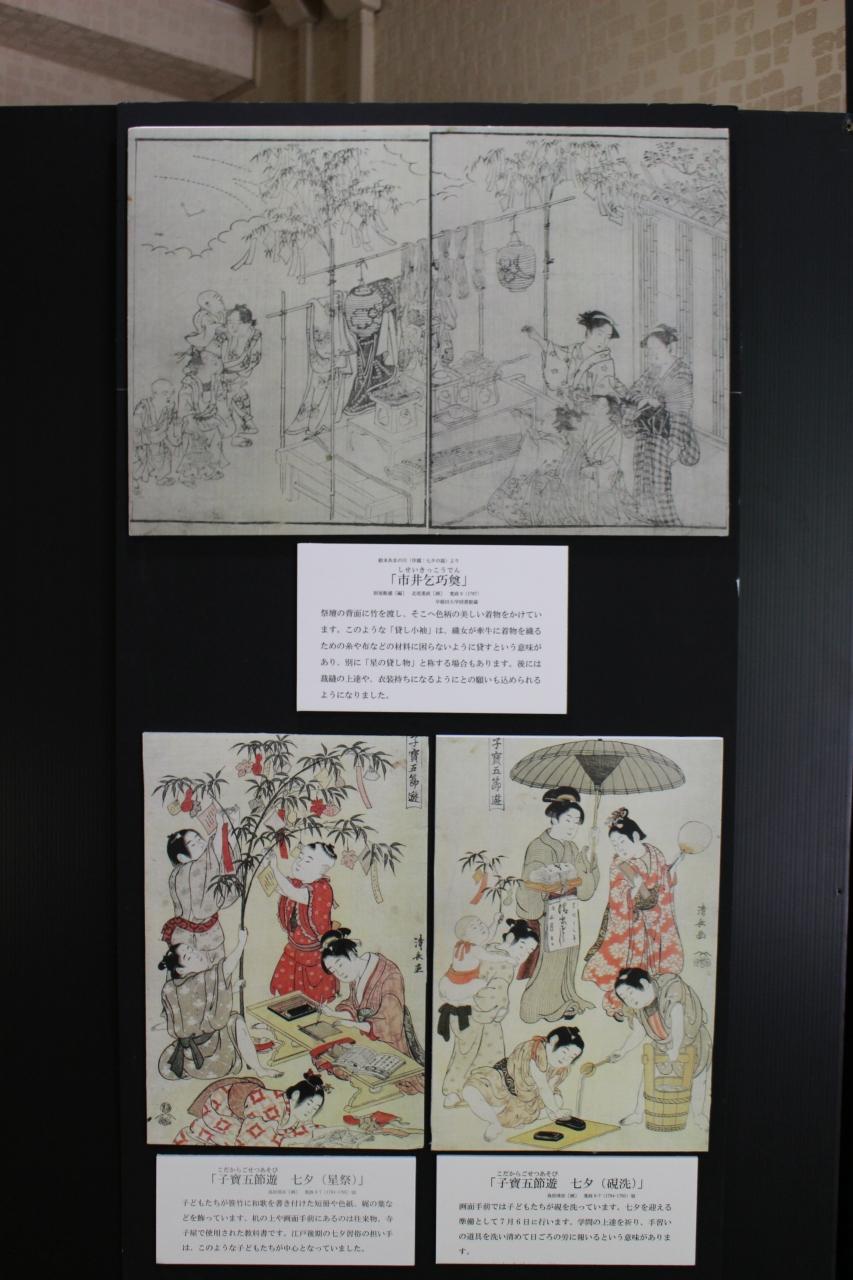 絵本あまの川(外題:七夕の縁)より
しせいきっこうでん
「市井乞巧奠」
早稲田大学図書館蔵
祭壇の背面に竹を渡し、そこへ色柄の美しい着物をかけてい
ます。このような「貸し小袖」は、織女が牽牛に着物を織る
ための糸や布などの材料に困らないように貸すという意味が
あり、別に「星の貸し物」と称する場合もあります。後には
裁縫の上達や、衣装持ちになるようにとの願いも込められる
ようになりました。
子寶五節遊
清長画
子寶五節遊
清長画
こだからごせつあそび
「子寶五節遊 七夕(星祭)」
鳥居清長[画] 寛政6-7(1794-1795)頃
子どもたちが笹竹に和歌を書き付けた短冊や色紙、梶の葉な
どを飾っています。机の上や画面手前にあるのは往来物、寺
子屋で使用された教科書です。江戸後期の七夕習俗の担い手
は、このような子どもたちが中心となっていました。
こだからごせつあそび
「子寶五節遊 七夕(硯洗)」
鳥居清長[画] 寛政6-7(1794-1795)頃
画面手前では子どもたちが硯を洗っています。七夕を迎える
準備として7月6日に行います。学問の上達を祈り、手習い
の道具を洗い清めて日ごろの労に報いるという意味がありま
す。